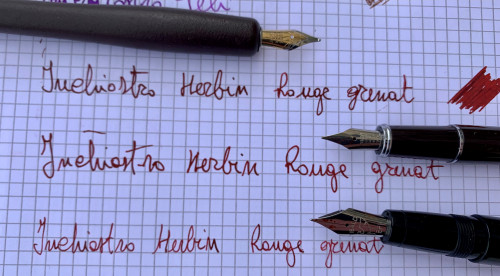 Inchiostro Herbin Rouge grenat
Inchiostro Herbin Rouge grenat
Inchiostro Herbin Rouge grenat